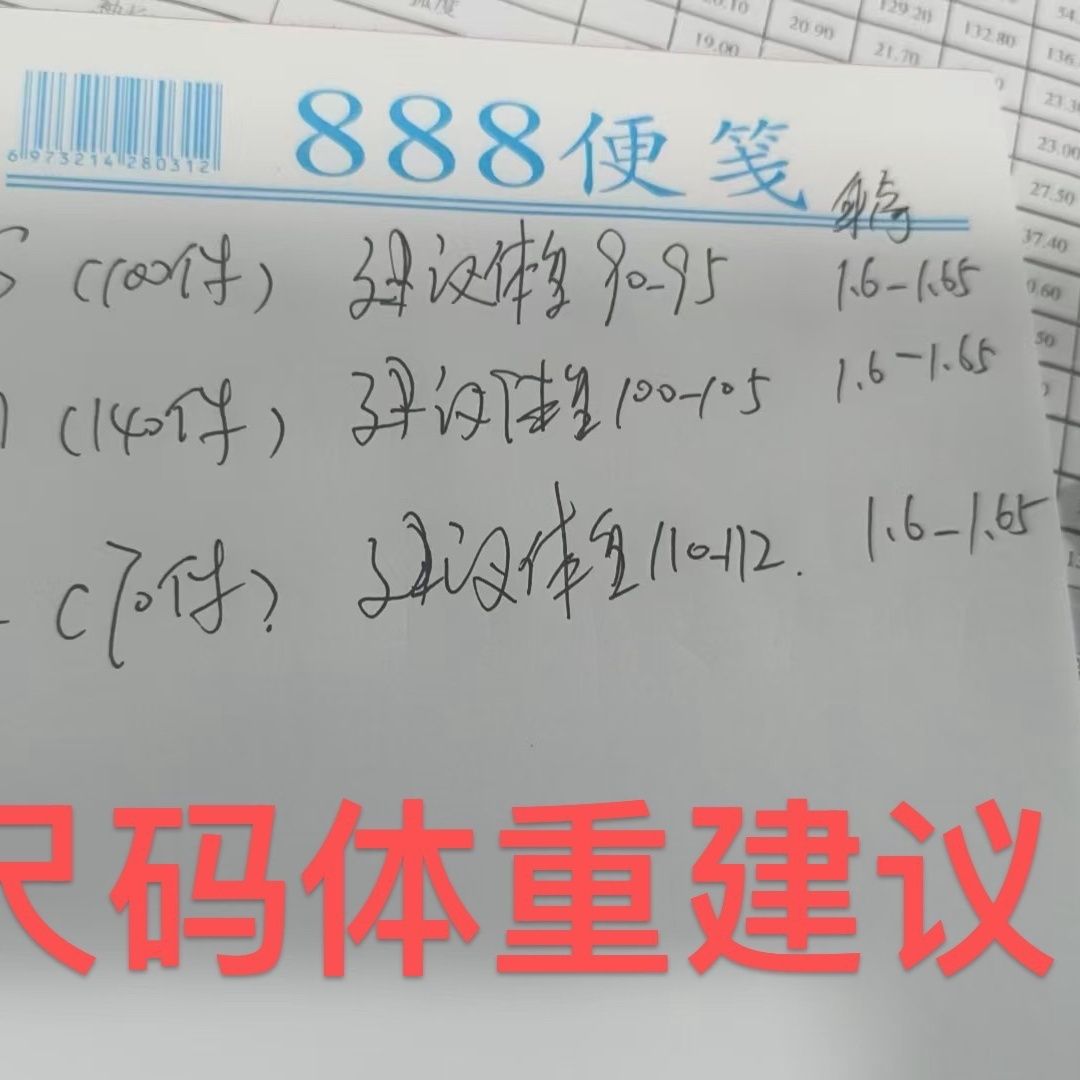 20.10 20.90 129.20 132.80
19.00 21.70
23.00
27.50
37.40
888便笺
6 973214 280312
身高
S (100件) 建议体重 90-95 1.6-1.65
(140件) 建议体重 100-105 1.6-1.65
(70件) 建议体重 110-112. 1.6-1.65
尺码体重建议